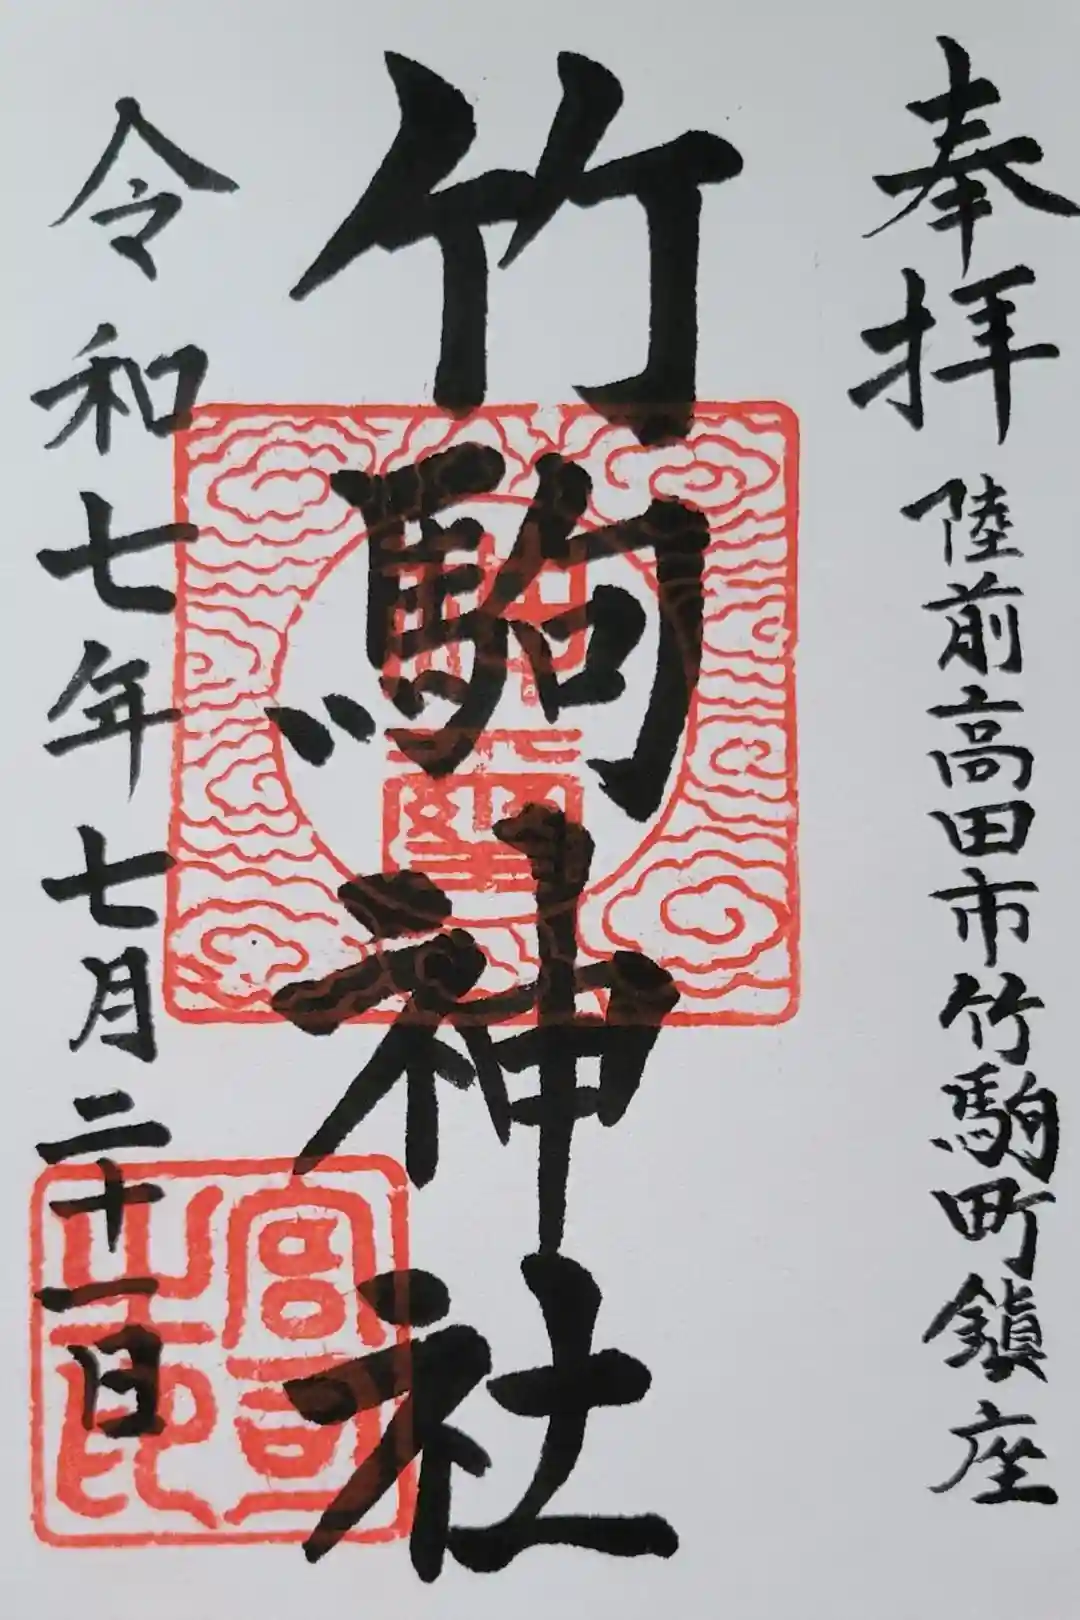 奉拝
陸前高田市竹駒町鎮座
竹駒神社
令和七年七月二十一日
宮司之印